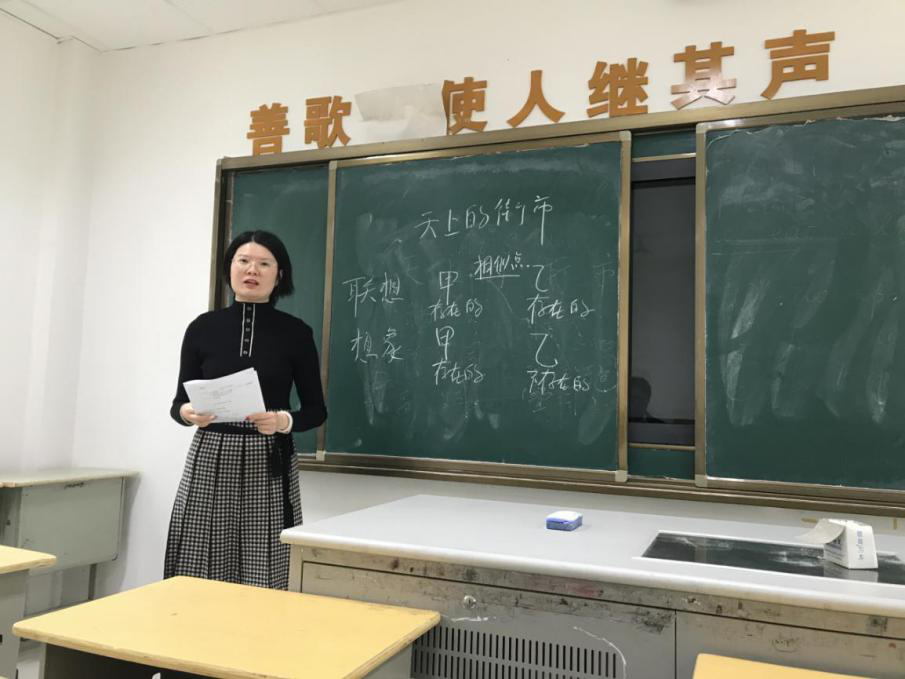 善歌 使人继其声
天上的街市
联想 甲 相似点 乙
存在的 存在的
想象 甲 乙
存在的 不存在的